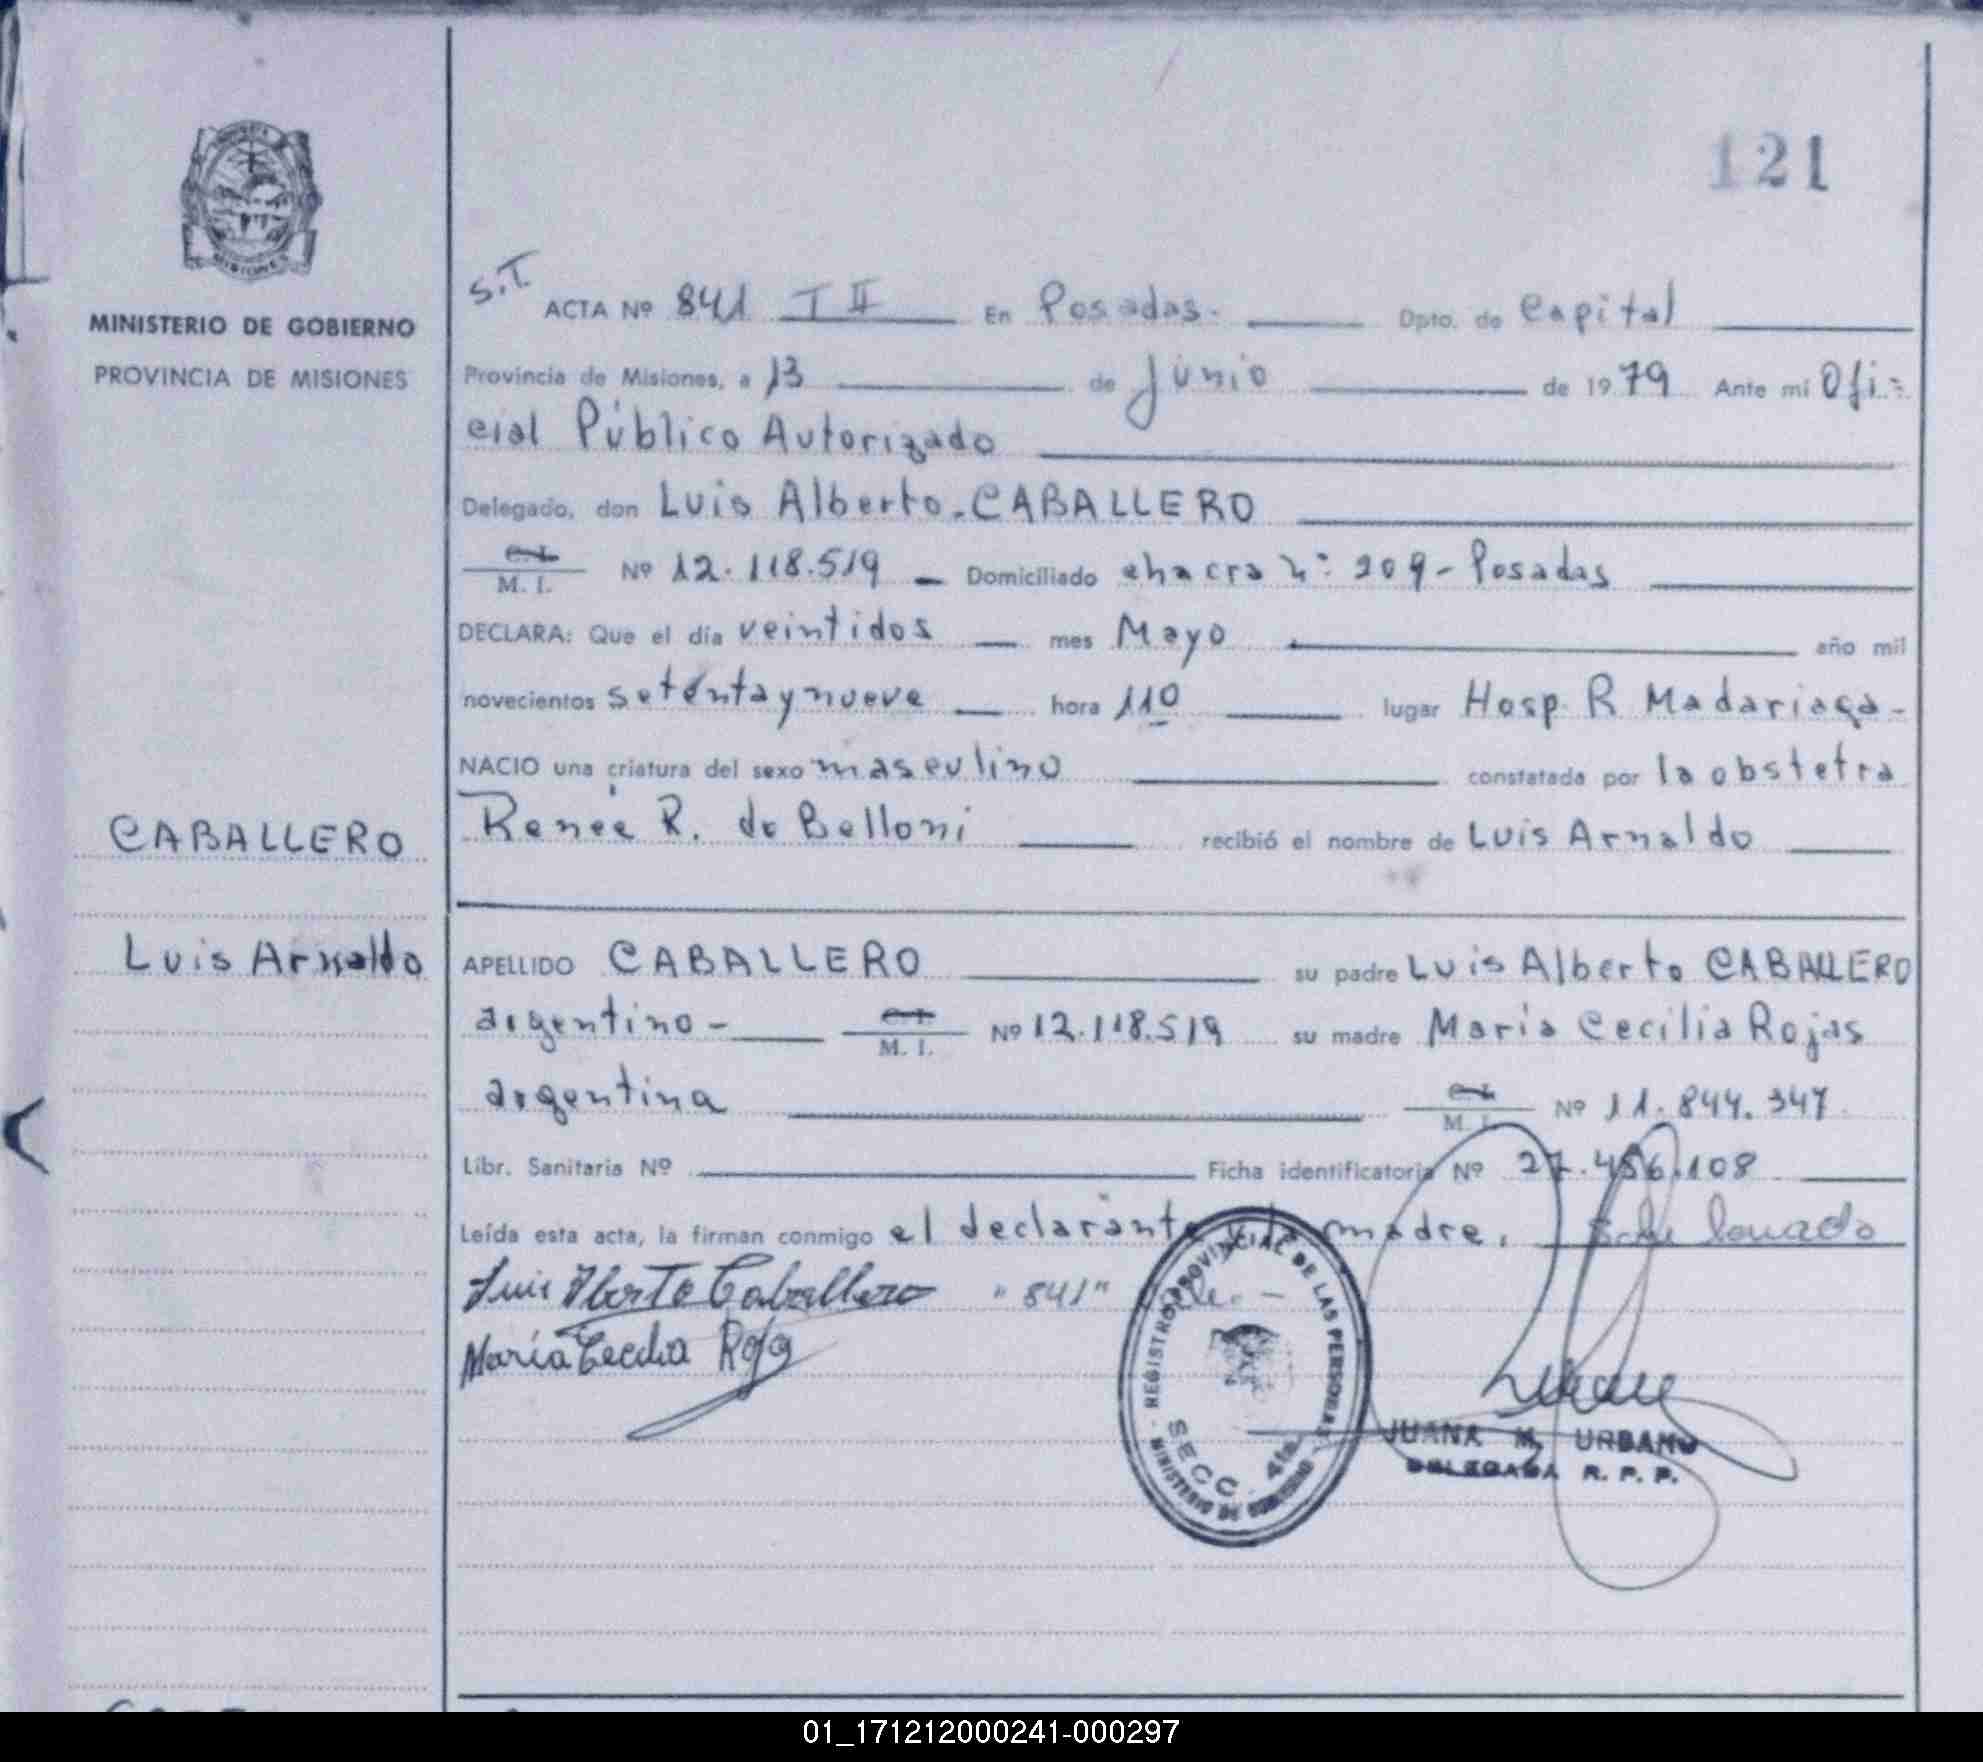 121
MISIONES
MINISTERIO DE GOBIERNO
PROVINCIA DE MISIONES
CABALLERO
Luis Arnaldo
S.T ACTA Nº 841 T II En Posadas. Dpto. de Capital
Provincia de Misiones, a 13 de Junio de 1979 Ante mí Ofi-
cial Público Autorizado
Delegado, don Luis Alberto CABALLERO
C.I. M. I. Nº 12.118.519 - Domiciliado chacra nº 209 - Posadas
DECLARA: Que el día veintidos mes Mayo año mil
novecientos setenta y nueve hora 11 0 lugar Hosp. R Madariaga-
NACIO una criatura del sexo masculino constatada por la obstetra
Renée R. de Belloni recibió el nombre de Luis Arnaldo
APELLIDO CABALLERO su padre Luis Alberto CABALLERO
argentino - C.I. M. I. Nº 12.118.519 su madre María Cecilia Rojas
argentina C.I. M. I. Nº 11.844.347
Libr. Sanitaria Nº Ficha identificatoria Nº 27.456.108
Leída esta acta, la firman conmigo el declarante y la madre.
Luis Alberto Caballero "841"
María Cecilia Rojas
REGISTRO PROVINCIAL DE LAS PERSONAS
MINISTERIO DE GOBIERNO
SECC. 4ta.
JUANA M. URBANO
DELEGADA R. P. P.
01_171212000241-000297